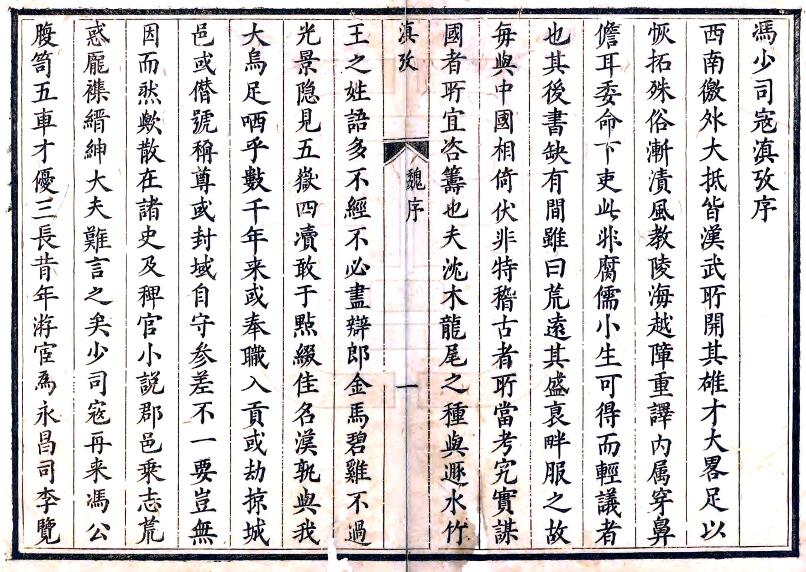 馮少司寇滇攷序
西南徼外大抵皆漢武所開其雄才大畧足以
恢拓殊俗漸漬風教陵海越障重譯內属穿鼻
儋耳委命下吏此非腐儒小生可得而輕議者
也其後書缺有間雖曰荒遠其盛衰畔服之故
每與中國相倚伏非特稽古者所當考究實謀
國者所宜咨籌也夫沈木龍尾之種與遯水竹
滇攷
魏序
一
王之姓語多不經不必盡辯郎金馬碧雞不過
光景隐見五嶽四瀆敢于點綴佳名漢孰與我
大烏足哂乎數千年来或奉職入貢或劫掠城
邑或僭號稱尊或封域自守参差不一要豈無
因而然歟散在諸史及稗官小說郡邑乘志荒
惑龐襍縉紳大夫難言之矣少司寇再来馮公
腹笥五車才優三長昔年游宦爲永昌司李覽